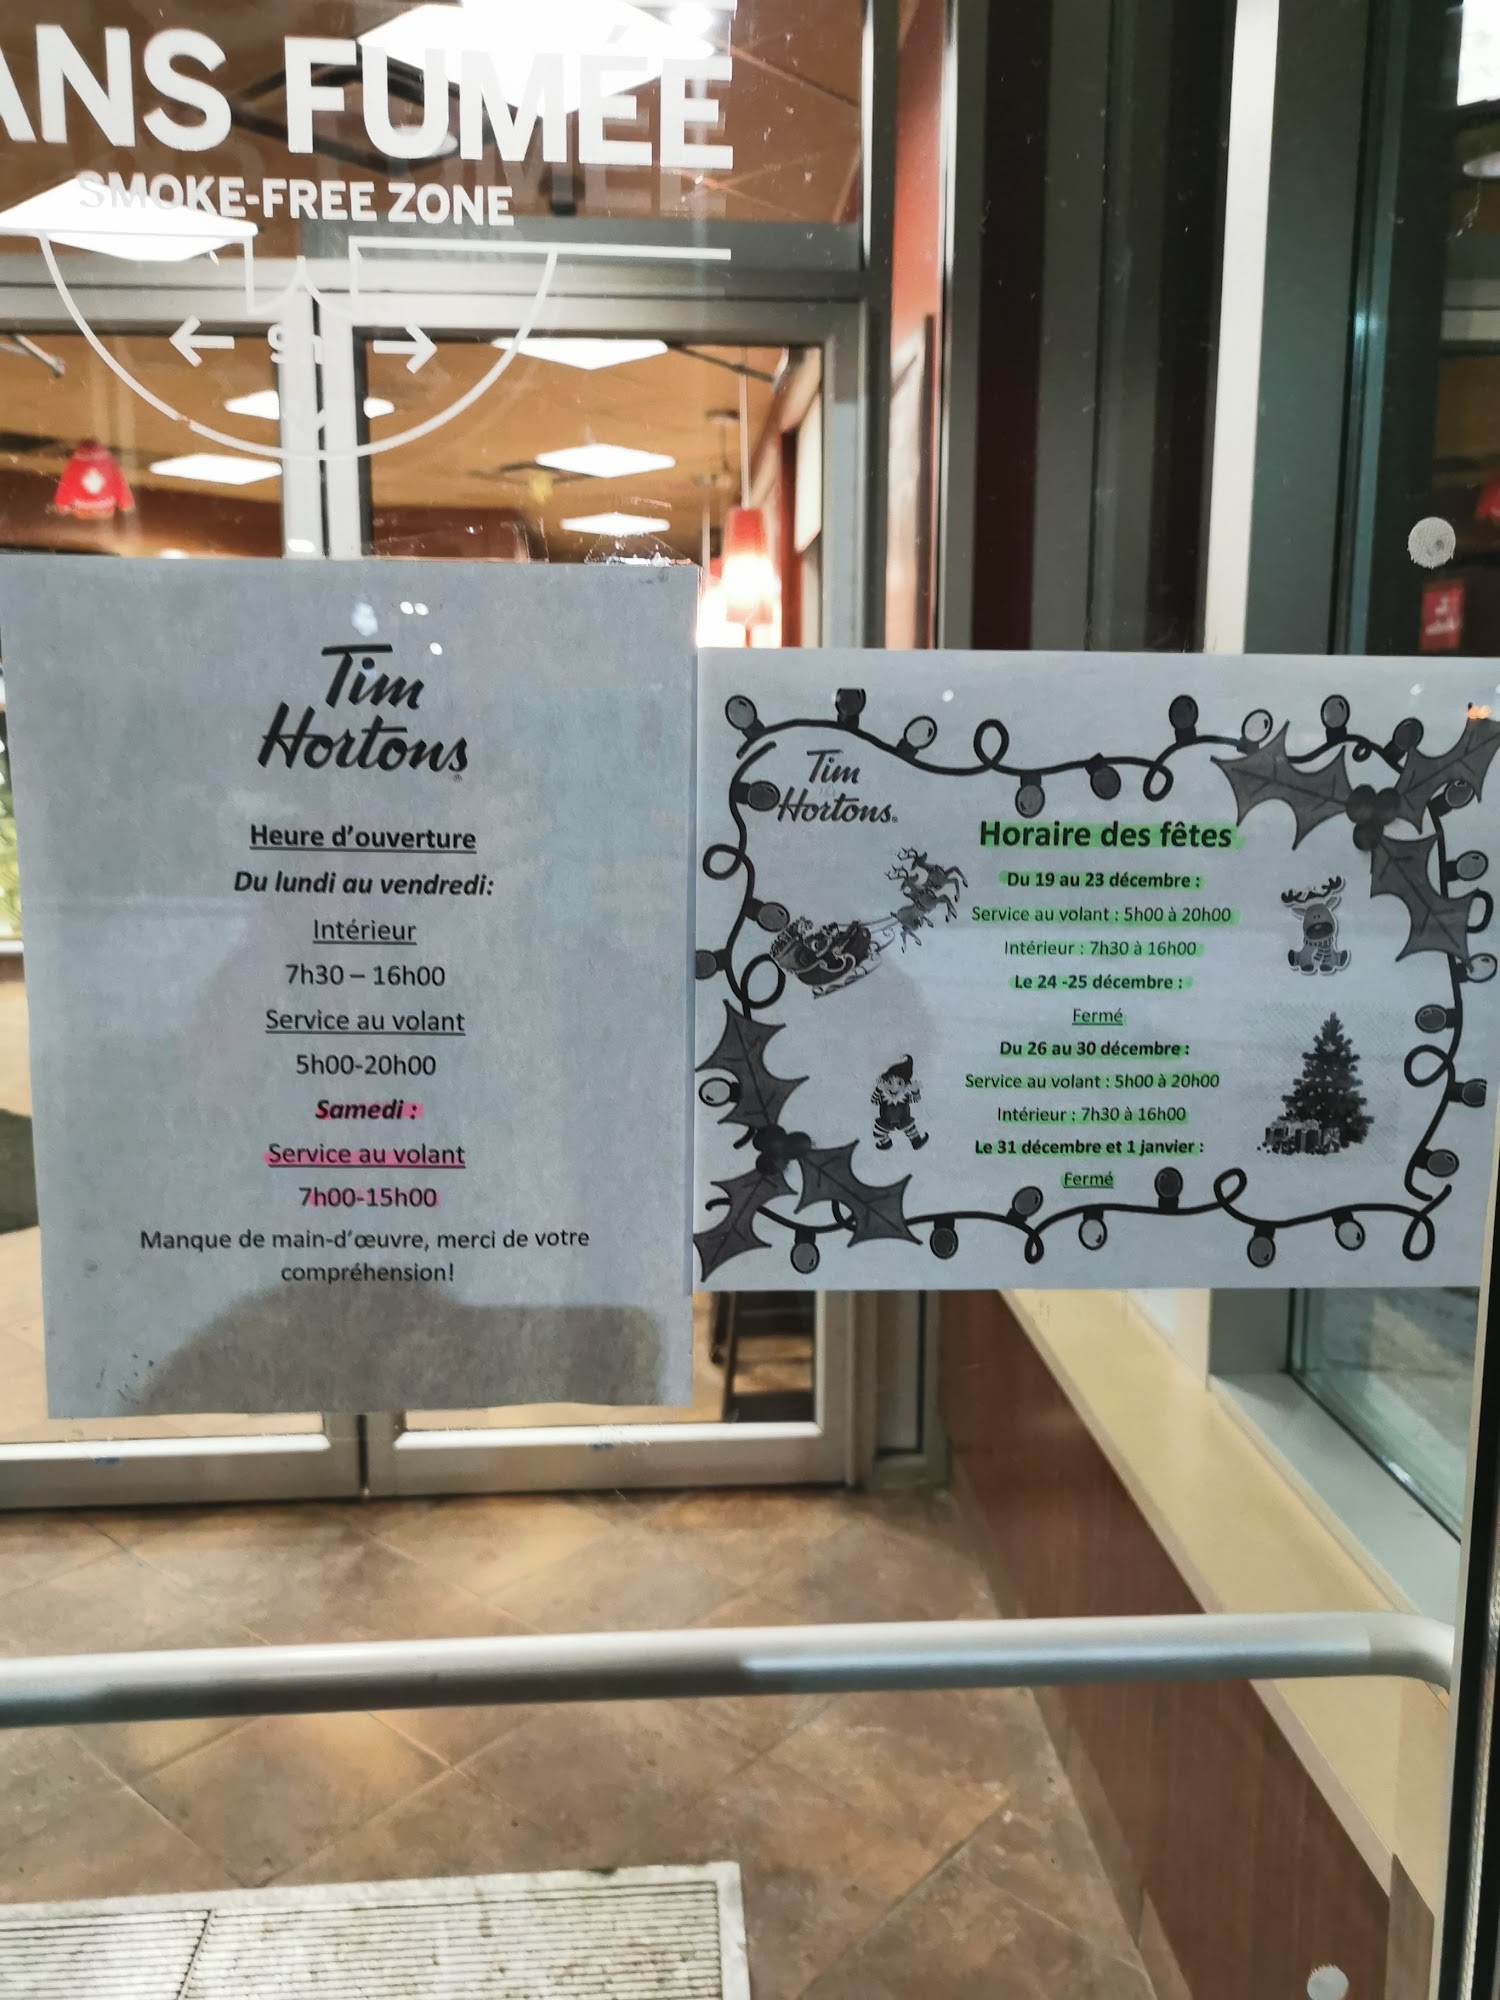 ANS FUMÉE
SMOKE-FREE ZONE
Tim
Hortons
Heure d'ouverture
Du lundi au vendredi:
Intérieur
7h30 – 16h00
Service au volant
5h00-20h00
Samedi :
Service au volant
7h00-15h00
Manque de main-d'œuvre, merci de votre
compréhension!
Tim
Hortons.
Horaire des fêtes
Du 19 au 23 décembre :
Service au volant : 5h00 à 20h00
Intérieur : 7h30 à 16h00
Le 24 -25 décembre :
Fermé
Du 26 au 30 décembre :
Service au volant : 5h00 à 20h00
Intérieur : 7h30 à 16h00
Le 31 décembre et 1 janvier :
Fermé